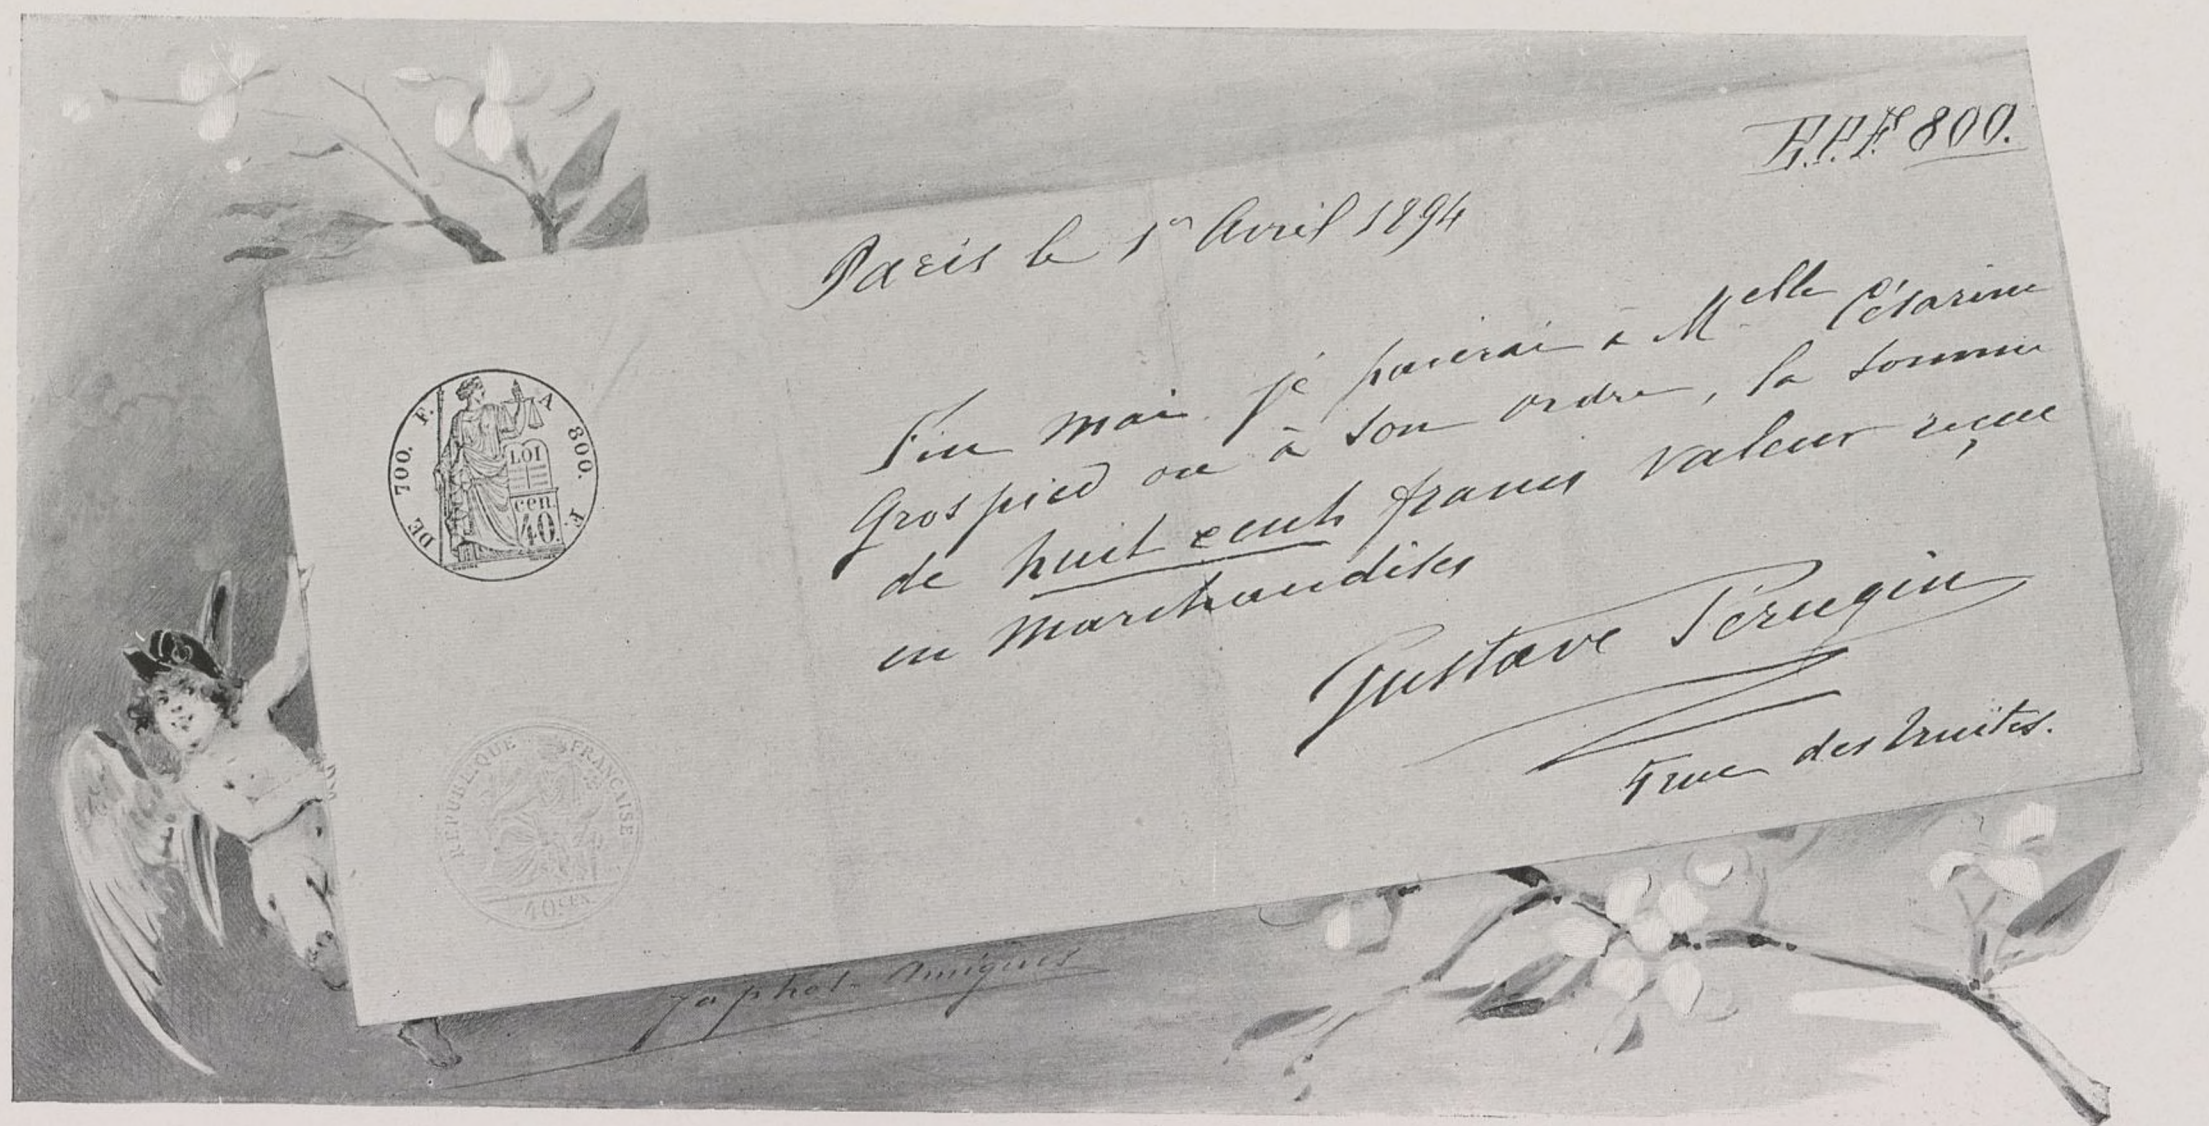 B.P.F. 800.
Paris le 1er Avril 1894
Fin mai je paierai à Melle Césarine
Grospied ou à son ordre, la somme
de huit cents francs valeur reçue
en marchandises
Gustave Pérugin
4 rue des Truites.
DE 700. F. A 800. F.
LOI
cen
40.
REPUBLIQUE FRANCAISE
40 CEN.